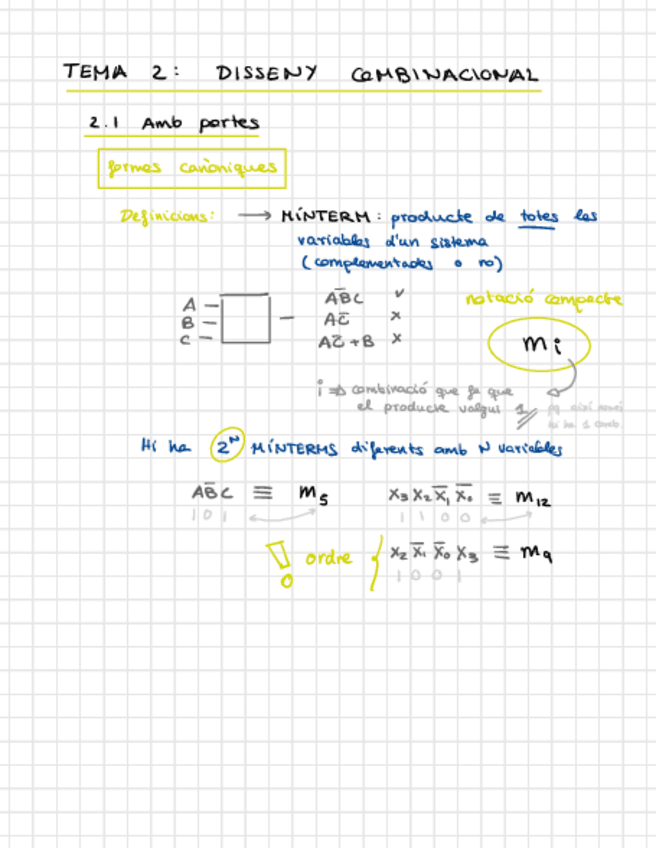 TEMA 2: DISSENY COMBINACIONAL
2.1 Amb portes
formes canòniques
Definicions: → MÍNTERM: producte de totes les
variables d'un sistema
(complementades o no)
A
B
C
AB̅C ✓
AC̅ x
AC̅+B x
notació compacte
mi
i ⇒ combinació que fa que
el producte valgui 1
hi ha 1 comb.
Hi ha 2^N MÍNTERMS diferents amb N variables
AB̅C ≡ m₅
1 0 1
X₃X₂X̅₁X̅₀ ≡ m₁₂
1 1 0 0
! ordre { X₂X̅₁X̅₀X₃ ≡ m₉
1 0 0 1